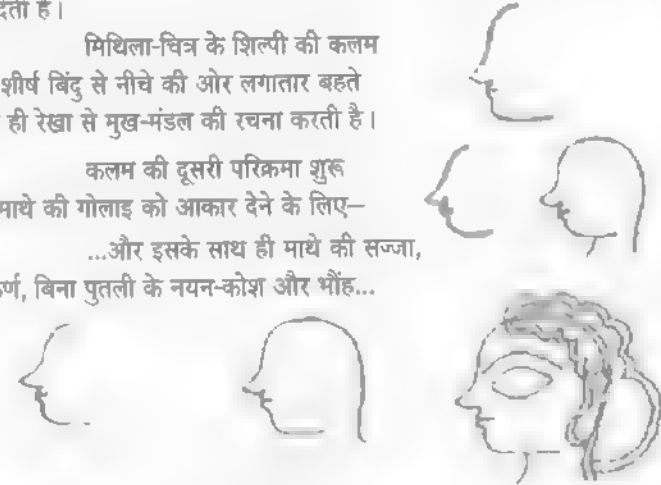 देती है।
मिथिला-चित्र के शिल्पी की कलम
शीर्ष बिंदु से नीचे की ओर लगातार बहते
ही रेखा से मुख-मंडल की रचना करती है।
कलम की दूसरी परिक्रमा शुरू
माथे की गोलाइ को आकार देने के लिए–
...और इसके साथ ही माथे की सज्जा,
बिना पुतली के नयन-कोश और भौंह...